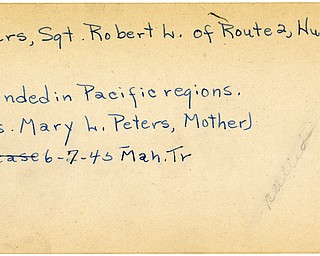 ers, Sgt. Robert L. of Route 2, Hu
nded in Pacific regions.
s. Mary L. Peters, Mother)
ease 6-7-45 Mah. Tr